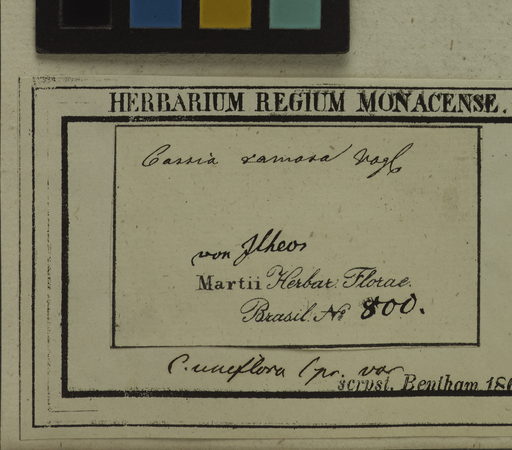 HERBARIUM REGIUM MONACENSE.
Cassia ramosa Vogl
von Ilheos
Martii Herbar. Florae.
Brasil. No 800.
C. uniflora Spr. var
scrpst. Bentham 186